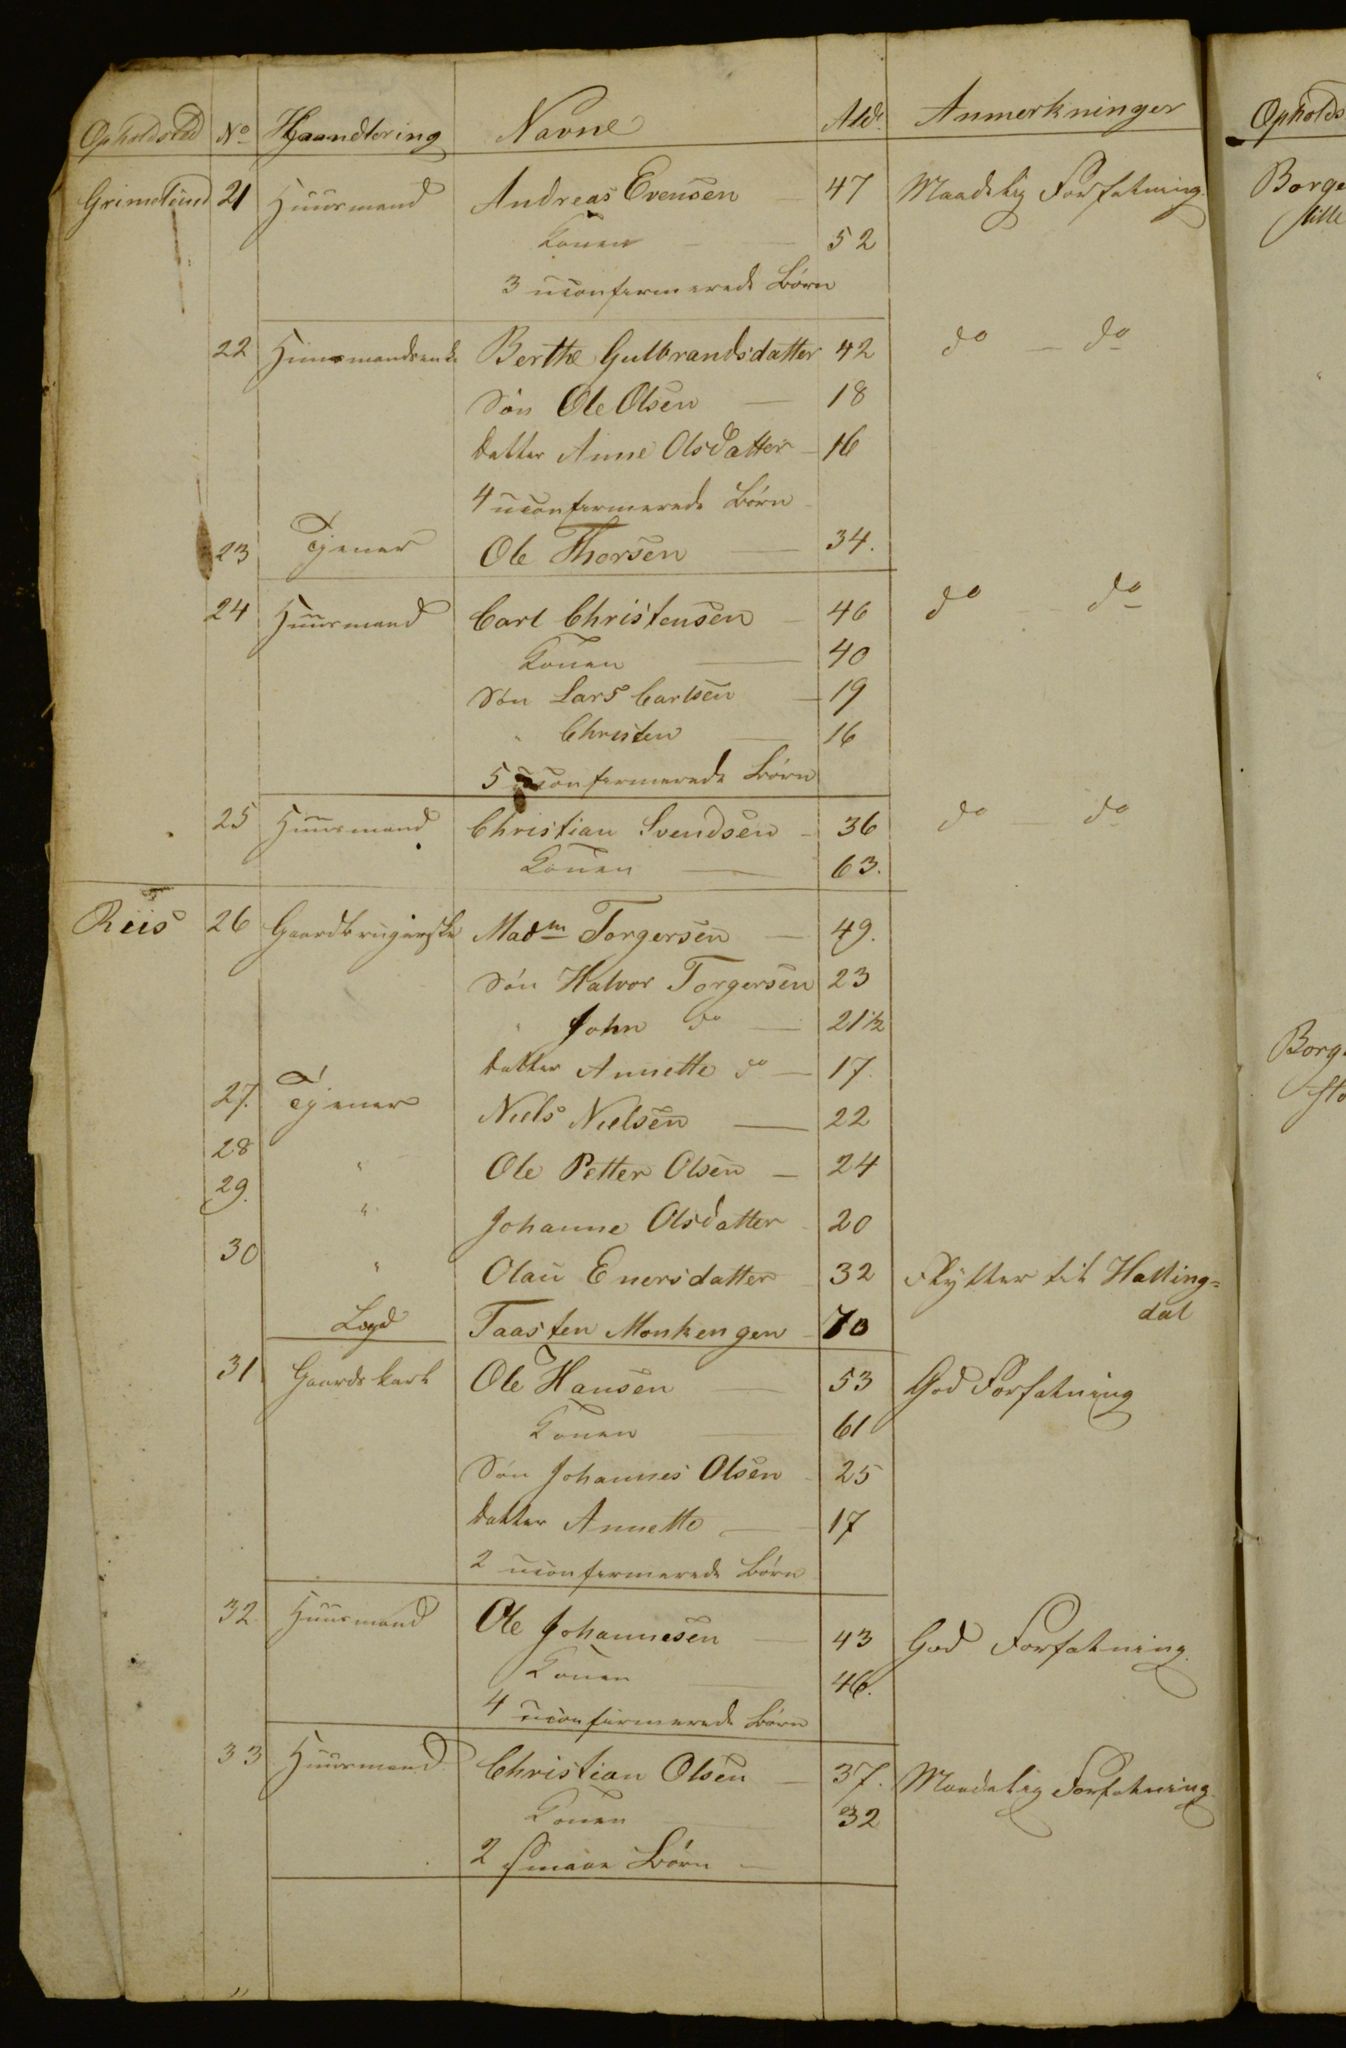 Opholdsted No Haandtering Navne Ald. Anmerkninger
Grimelund 21 Huusmand Andreas Evensen — 47 Maadelig Forfatning
Konen — 52
3 uconfirmerede Børn
22 Huusmandsenke Berthe Gulbrandsdatter 42 do — do
Søn Ole Olsen — 18
Datter Anne Olsdatter — 16
4 uconfirmerede Børn
23 Tjener Ole Thorsen — 34.
24 Huusmand Carl Christensen — 46 do — do
Konen — 40
Søn Lars Carlsen — 19
" Christen — 16
5 uconfirmerede Børn
25 Huusmand Christian Svendsen — 36 do — do
Konen — 63.
Riis 26 Gaardbrugerske Madm Torgersen — 49.
Søn Halvor Torgersen 23
" John do — 21½
Datter Annette do — 17.
27. Tjener Niels Nielsen — 22
28 " Ole Petter Olsen — 24
29. " Johanne Olsdatter — 20
30 " Olau Enersdatter 32 Flytter til Halling=
dal
Lægd Taasten Monkengen — 70
31 Gaardskarl Ole Hansen — 53 God Forfatning
Konen — 61
Søn Johannes Olsen — 25
Datter Annette — 17
2 uconfirmerede Børn
32. Huusmand Ole Johannesen — 43 God Forfatning.
Konen — 46.
4 uconfirmerede Børn
33 Huusmand Christian Olsen — 37. Maadelig Forfatning.
Konen — 32
2 smaae Børn —
Opholds
Borge
lille
Borg